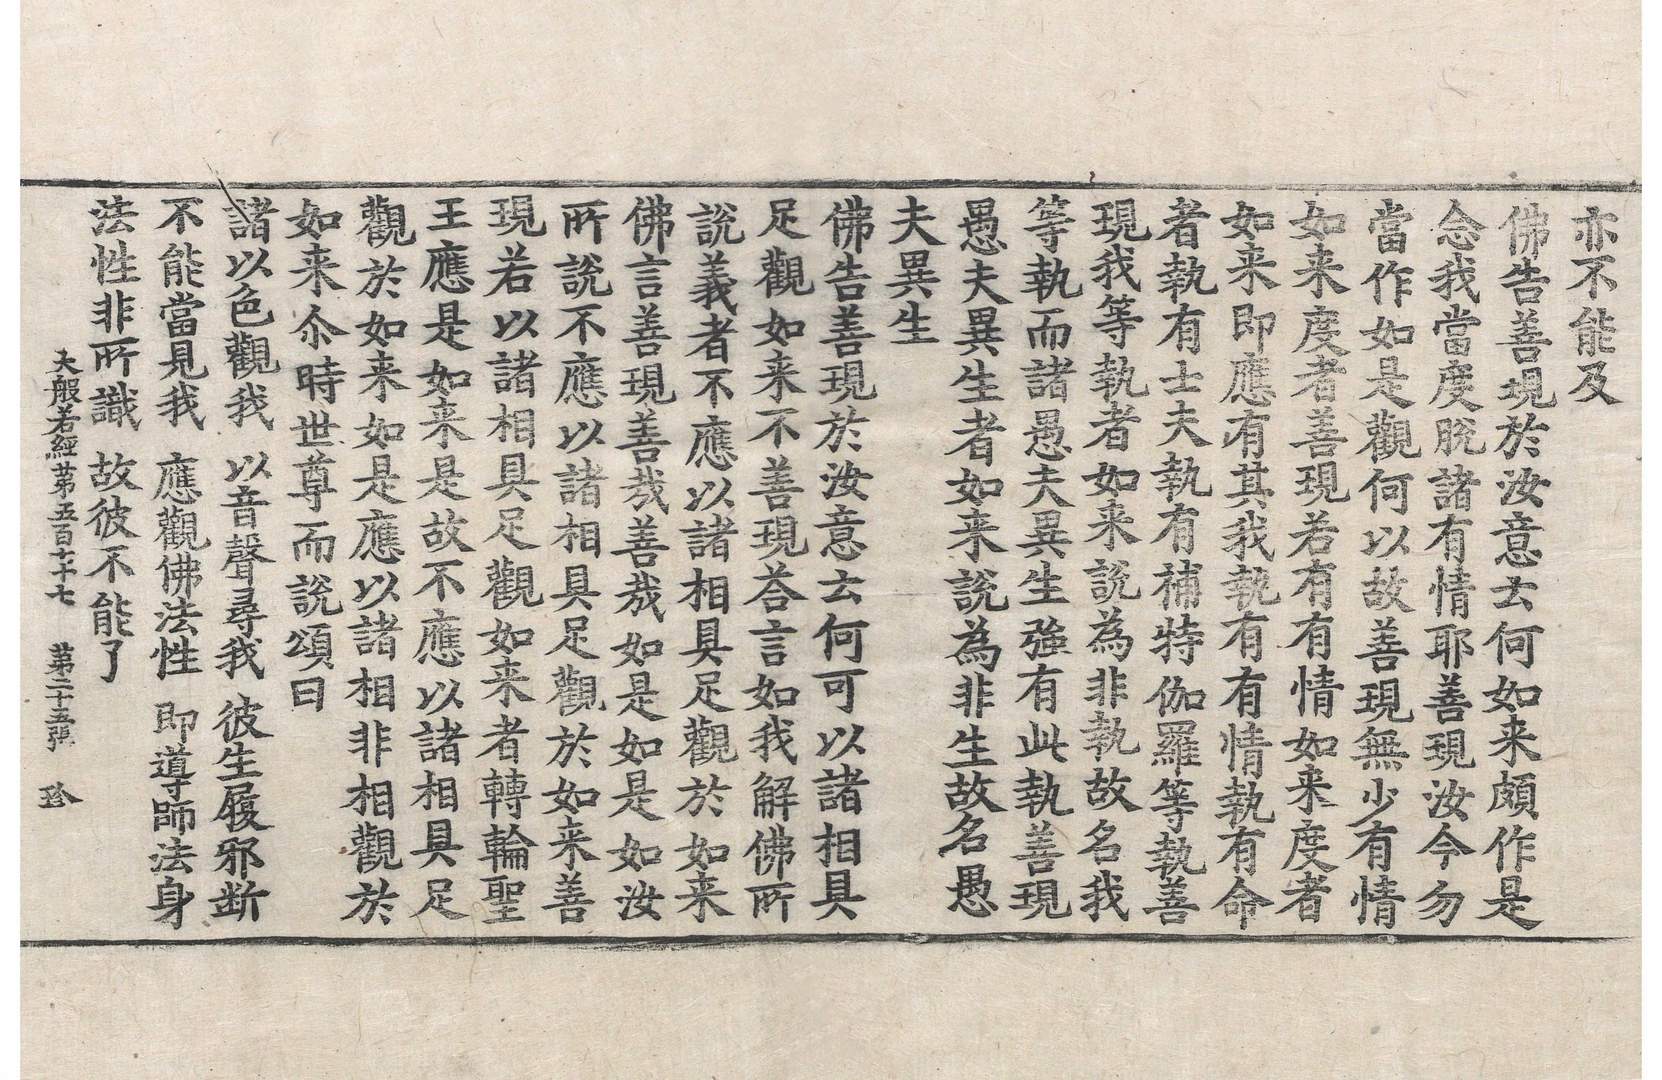 亦不能及
佛告善現於汝意云何如来頗作是
念我當度脫諸有情耶善現汝今勿
當作如是觀何以故善現無少有情
如来度者善現若有有情如来度者
如来即應有其我執有有情執有命
者執有士夫執有補特伽羅等執善
現我等執者如来說為非執故名我
等執而諸愚夫異生強有此執善現
愚夫異生者如来說為非生故名愚
夫異生
佛告善現於汝意云何可以諸相具
足觀如来不善現荅言如我解佛所
說義者不應以諸相具足觀於如来
佛言善現善哉善哉如是如是如汝
所說不應以諸相具足觀於如来善
現若以諸相具足觀如来者轉輪聖
王應是如来是故不應以諸相具足
觀於如来如是應以諸相非相觀於
如来尒時世尊而說頌曰
諸以色觀我 以音聲尋我 彼生履邪断
不能當見我 應觀佛法性 即導師法身
法性非所識 故彼不能了
大般若經苐五百七十七 苐二十五張 珍